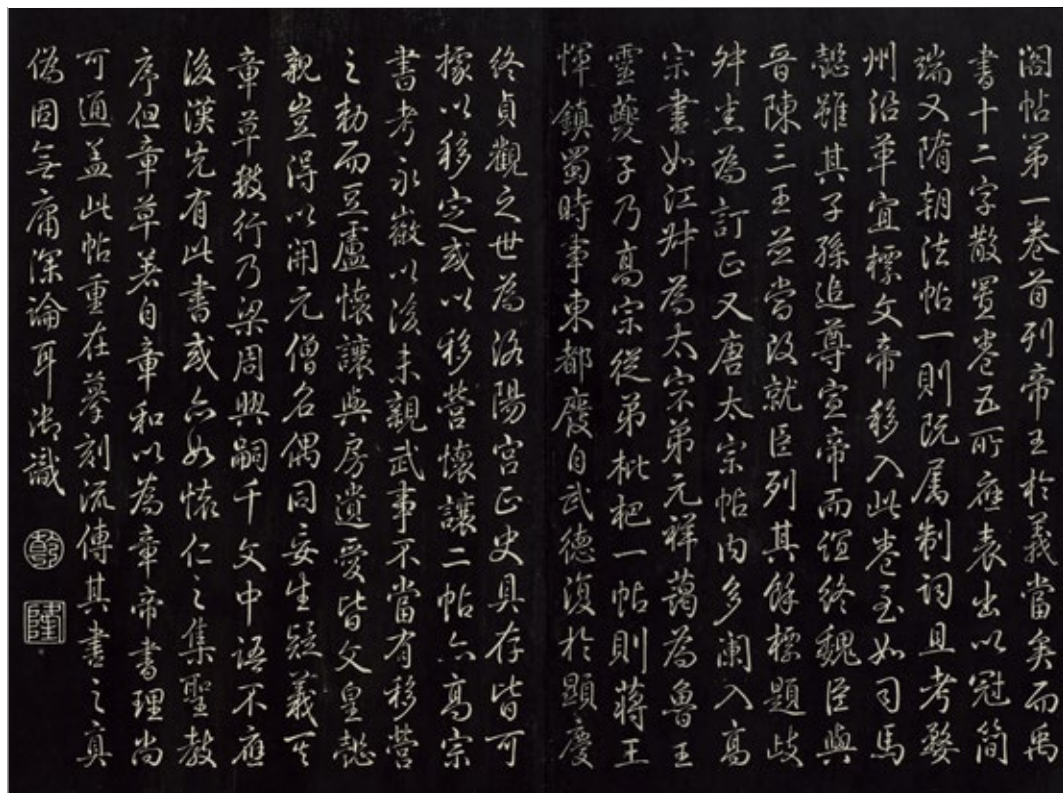 閣帖第一卷首列帝王於義當矣而禹
書十二字散置卷五所應表出以冠簡
端又隋朝法帖一則既屬制詞且考婺
州沿革宜標文帝移入此卷至如司馬
懿雖其子孫追尊宣帝而誼終魏臣與
晉陳三王並當改就臣列其餘標題歧
舛悉為訂正又唐太宗帖內多闌入高
宗書如江叔為太宗弟元祥藹為魯王
靈夔子乃高宗從弟枇杷一帖則蔣王
惲鎮蜀時事東都廢自武德復於顯慶
終貞觀之世為洛陽宮正史具存皆可
據以移定或以移營懷讓二帖亦高宗
書考永徽以後未親武事不當有移營
之勅而豆盧懷讓與房遺愛皆文皇懿
親豈得以開元僧名偶同妄生疑義至
章草數行乃梁周興嗣千文中語不應
後漢先有此書或亦如懷仁之集聖教
序但章草著自章和以為章帝書理尚
可通盖此帖重在摹刻流傳其書之真
偽固無庸深論耳御識
乾
隆